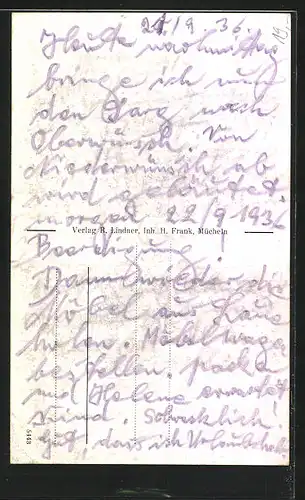 21/9 36.
19,-
Heute nachmittag
bringe ich nur
den Sarg nach
Oberwünsch. Von
Niederwünsch ab
wird geläutet.
morgen 22/9 1936
Verlag R. Lindner, Inh. H. Frank, Mücheln
Beerdigung
Dann wieder die
Möbel aus Hause
holen. Möbelwagen
bestellen. packen
und Helene erwartet
Kind. Schrecklich
gut, dass ich Urlaub habe
5448